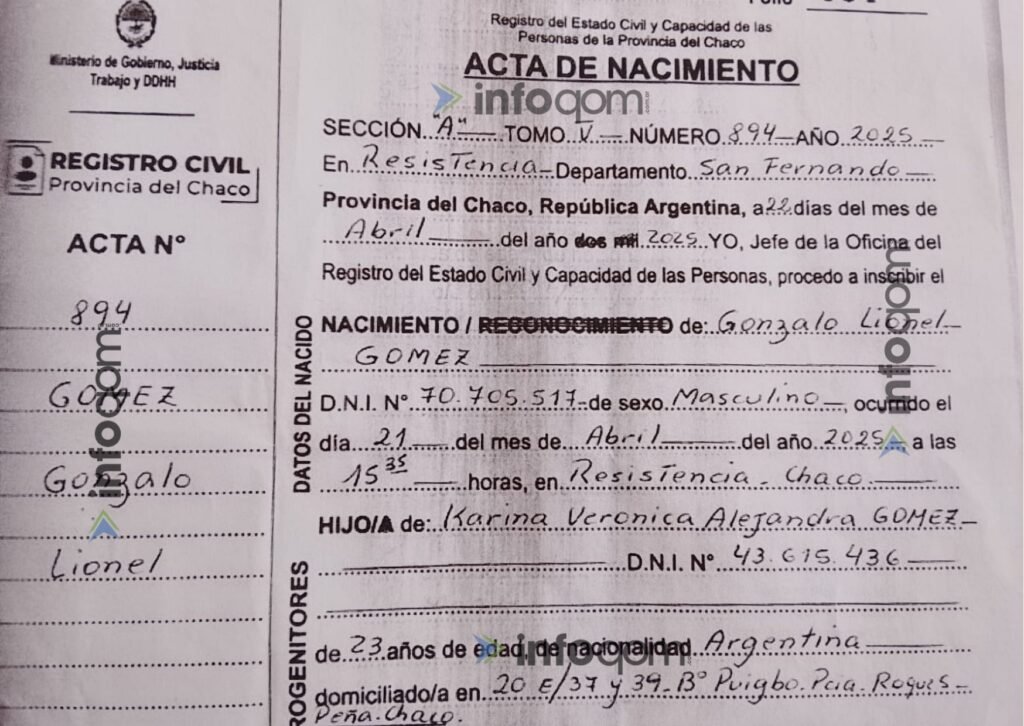 Ministerio de Gobierno, Justicia
Trabajo y DDHH
REGISTRO CIVIL
Provincia del Chaco
ACTA N°
894
GOMEZ
Gonzalo
Lionel
Registro del Estado Civil y Capacidad de las
Personas de la Provincia del Chaco
ACTA DE NACIMIENTO
infoqom
SECCIÓN "A" TOMO V NÚMERO 894 AÑO 2025
En Resistencia Departamento San Fernando
Provincia del Chaco, República Argentina, a 22 días del mes de
Abril del año dos mil 2025 YO, Jefe de la Oficina del
Registro del Estado Civil y Capacidad de las Personas, procedo a inscribir el
DATOS DEL NACIDO
NACIMIENTO / RECONOCIMIENTO de: Gonzalo Lionel
GOMEZ
D.N.I. N° 70.705.517 de sexo Masculino, ocurrido el
día 21 del mes de Abril del año 2025 a las
15 35 horas, en Resistencia - Chaco
HIJO/A de: Karina Veronica Alejandra GOMEZ
D.N.I. N° 43.615.436
ROGENITORES
de 23 años de edad, de nacionalidad Argentina
infoqom
domiciliado/a en 20 E/37 y 39 - B° Puigbo. Pcia. Roques
Peña. Chaco.
infoqom
infoqom